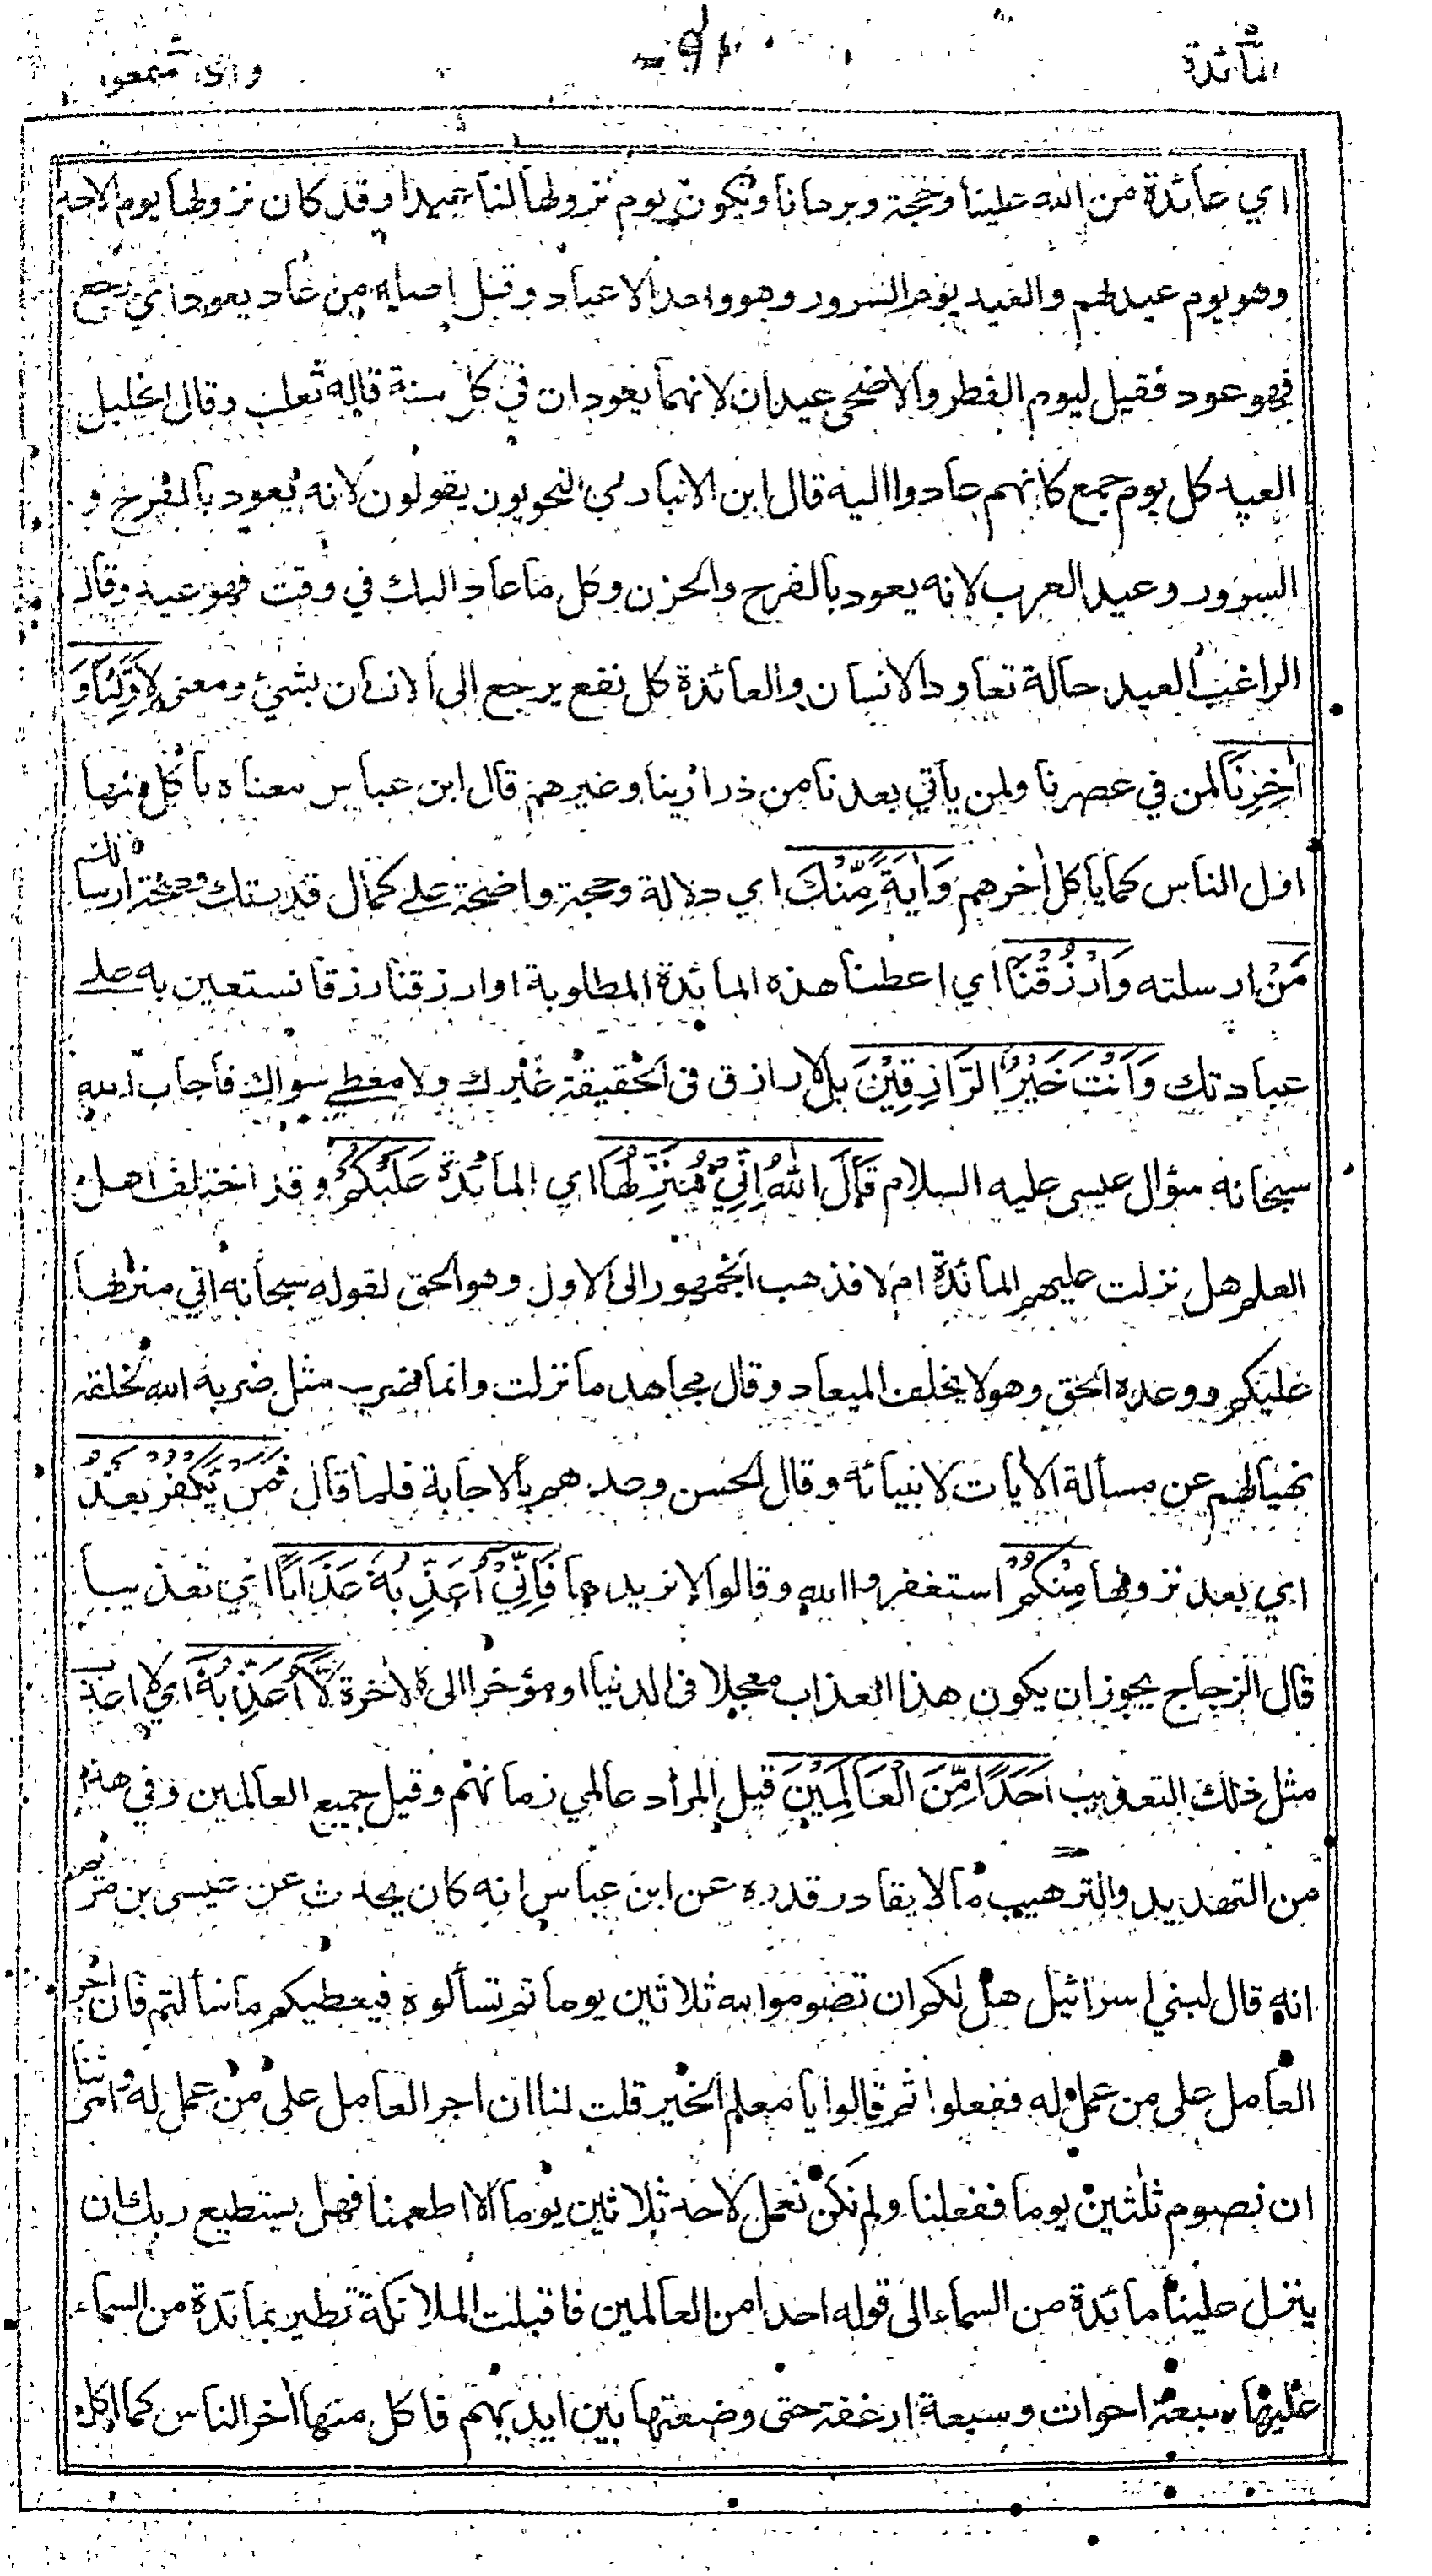 المائدة
واذا سمعوا
اي عائدة من الله علينا وحجة وبرهانا ويكون يوم نزولها لنا عيدا وقد كان نزولها يوم الاحد
وهو يوم عيد لهم والعيد يوم السرور وهو واحد الاعياد وقيل اصله من عاد يعود اي رجع
فهو عود فقيل ليوم الفطر والاضحى عيدان لانهما يعودان في كل سنة قاله ثعلب وقال الخليل
العيد كل يوم جمع كانهم عادوا اليه قال ابن الانباري النحويون يقولون لانه يعود بالفرح و
السرور وعيد العرب لانه يعود بالفرح والحزن وكل ما عاد اليك في وقت فهو عيد وقال
الراغب العيد حالة تعاود الانسان والعائدة كل نفع يرجع الى الانسان بشيء ومعنى لِاَوَّلِنَا وَ
أٰخِرِنَا لمن في عصرنا ولمن يأتي بعدنا من ذرارينا وغيرهم قال ابن عباس معناه يأكل منها
اول الناس كما يأكل أخرهم وَاٰيَةً مِّنْكَ اي دلالة وحجة واضحة على كمال قدرتك وصحة ارسالك
مَنْ ارسلته وَارْزُقْنَا اي اعطنا هذه المائدة المطلوبة او ارزقنا رزقا نستعين به على
عبادتك وَاَنْتَ خَيْرُ الرَّازِقِيْنَ بل لا رازق في الحقيقة غيرك ولا معطي سواك فأجاب الله
سبحانه سؤال عيسى عليه السلام قَالَ اللهُ اِنِّيْ مُنَزِّلُهَا اي المائدة عَلَيْكُمْ وقد اختلف اهل
العلم هل نزلت عليهم المائدة ام لا فذهب الجمهور الى الاول وهو الحق لقوله سبحانه اني منزلها
عليكم ووعده الحق وهو لا يخلف الميعاد وقال مجاهد ما نزلت وانما ضرب مثل ضربه الله لخلقه
نهيا لهم عن مسألة الأيات لانبيائه وقال الحسن وعدهم بالاجابة فلما قال فَمَنْ يَّكْفُرْ بَعْدُ
اي بعد نزولها مِنْكُمْ استغفروا الله وقالوا لا نريدها فَاِنِّيْ أُعَذِّبُهُ عَذَابًا اي تعذيبا
قال الزجاج يجوز ان يكون هذا العذاب معجلا في الدنيا او مؤخرا الى الأخرة لَّا أُعَذِّبُهُ اي لا اعذب
مثل ذلك التعذيب اَحَدًا مِّنَ الْعَالَمِيْنَ قيل المراد عالمي زمانهم وقيل جميع العالمين وفي هذا
من التهديد والترهيب ما لا يقادر قدره عن ابن عباس انه كان يحدث عن عيسى بن مريم
انه قال لبني اسرائيل هل لكم ان تصوموا لله ثلاثين يوما ثم تسألوه فيعطيكم ما سألتم فان اجر
العامل على من عمل له ففعلوا ثم قالوا يا معلم الخير قلت لنا ان اجر العامل على من عمل له وامرتنا
ان نصوم ثلثين يوما ففعلنا ولم نكن نعمل لاحد ثلاثين يوما الا اطعمنا فهل يستطيع ربك ان
ينزل علينا مائدة من السماء الى قوله احدا من العالمين فاقبلت الملائكة تطير بمائدة من السماء
عليها سبعة احوات وسبعة ارغفة حتى وضعتها بين ايديهم فاكل منها أخر الناس كما اكل